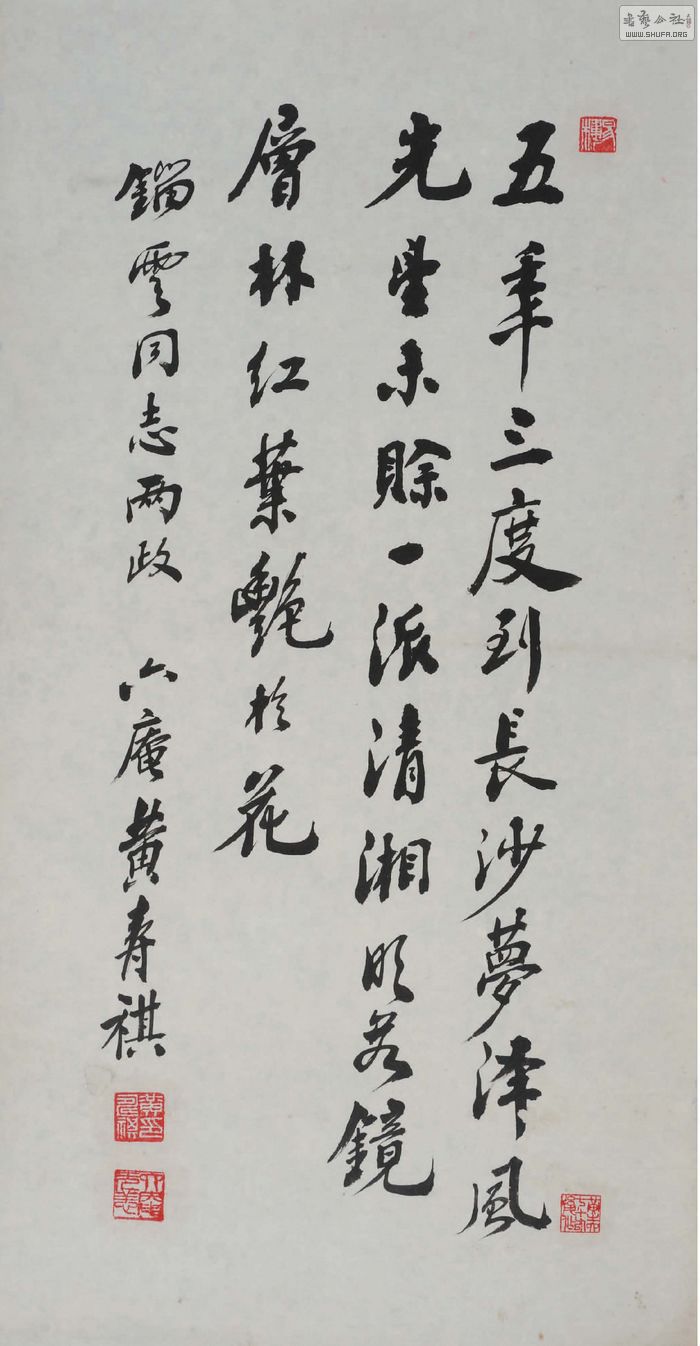 五年三度到長沙夢澤風
光望未賒一派清湘明若鏡
層林紅葉艷於花
雲同志兩政 六庵黃壽祺
書藝公社
WWW.SHUFA.ORG